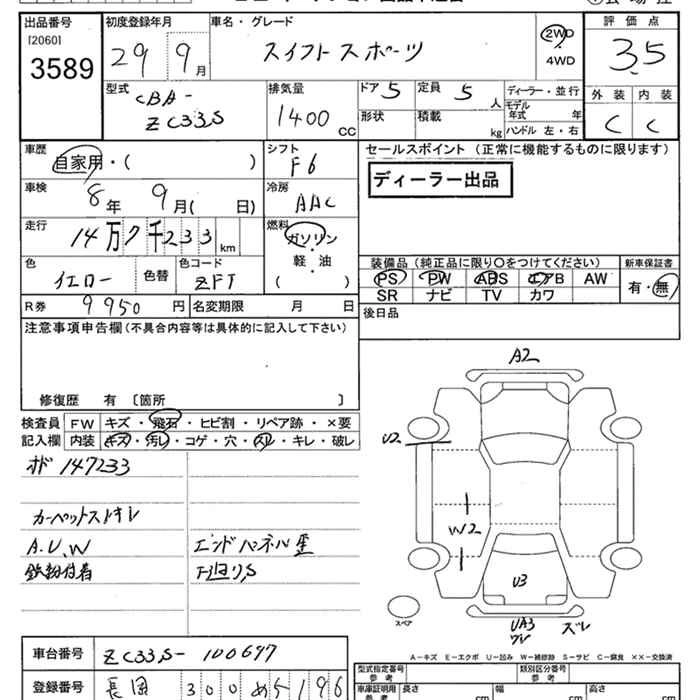 出品番号
[2060]
3589
初度登録年月
29 9月
車名・グレード
スイフトスポーツ
2WD
4WD
評価点
3.5
型式
CBA-
ZC33S
排気量
1400 CC
ドア 5
定員 5 人
ディーラー・並行
モデル年式 年
形状
積載 kg
ハンドル 左・右
外装 内装
C C
車歴
自家用・( )
シフト
F6
車検
8年 9月( 日)
冷房
AAC
走行
14万7千233 km
燃料
ガソリン
軽・油
( )
色
イエロー
色替
色コード
ZFT
R券 9950円
名変期限 月 日
セールスポイント (正常に機能するものに限ります)
ディーラー出品
装備品 (純正品に限り〇をつけてください)
新車保証書
PS PW ABS エアB AW
有・無
SR ナビ TV カワ
後日品
注意事項申告欄(不具合内容等は具体的に記入して下さい)
修復歴 有 〔箇所 〕
検査員 FW キズ・飛石・ヒビ割・リペア跡・×要
記入欄 内装 キズ・汚レ・コゲ・穴・スレ・キレ・破レ
メーター 147233
カーペットスレキレ
A.U.W
エンドパネル歪
鉄粉付着
下廻りS
A2
U2
W2
U3
UA3
ズレ
スペア
A－キズ E－エクボ U－凹み W－補修跡 S－サビ C－腐食 ××－交換済
車台番号 ZC33S-100697
型式指定番号
参考
類別区分番号
参考
登録番号 長岡 300 め5196
車庫証明用
参考
長さ cm
幅 cm
高さ cm